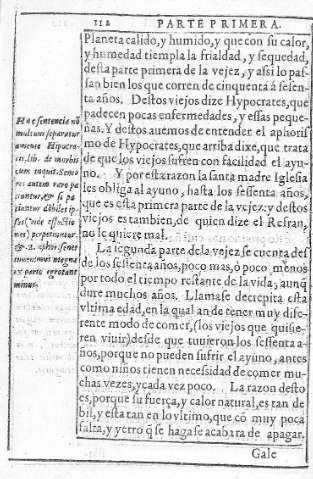 112 PARTE PRIMERA.
Planeta calido, y humido, y que con su calor,
y humedad tiempla la frialdad, y sequedad,
desta parte primera de la vejez, y assi lo pas-
san bien los que corren de cinquenta à sesen-
ta años. Destos viejos dize Hypocrates, que
padecen pocas enfermedades, y essas peque-
ñas. Y destos auemos de entender el aphoris-
mo de Hypocrates, que arriba dize, que trata
de que los viejos sufren con facilidad el ayu-
no. Y por esta razon la santa madre Iglesia
les obliga al ayuno, hasta los sessenta años,
que es esta primera parte de la vejez: y destos
viejos es tambien, de quien dize el Refran,
no le quiere mal.
La segunda parte de la vejez se cuenta des
de los sessenta años, poco mas, ò poco menos
por todo el tiempo restante de la vida, aunq̃
dure muchos años. Llamase decrepita esta
vltima edad, en la qual an de tener muy dife-
rente modo de comer, (los viejos que quisie-
ren viuir) desde que tuuieron los sessenta a-
ños, porque no pueden sufrir el ayuno, antes
como niños tienen necessidad de comer mu-
chas vezes, y cada vez poco. La razon desto
es, porque su fuerça, y calor natural, es tan de
bil, y esta tan en lo vltimo, que cõ muy poca
falta, y yerro q̃ se haga se acabara de apagar.
Gale
Hac sententia nõ
multum separatur
Hipocra-
tes, lib. de morbis
cum inquit. Senio
res autem raro pa
tiuntur, & si pa
tiuntur debiles ip-
sos
perpetuantur.
& 2. aphor. senes
magna
ex parte egrotant
minus.